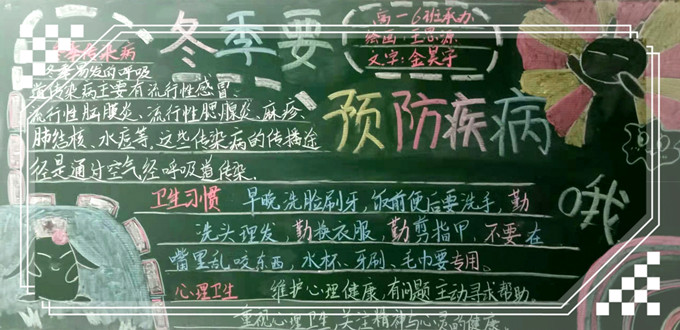 冬季要
预防疾病
高一6班承办
绘画:王思源
文字:金昊宇
冬季传染病
冬季高发的呼吸
道传染病主要有流行性感冒、
流行性脑膜炎、流行性腮腺炎、麻疹、
肺结核、水痘等,这些传染病的传播途
径是通过空气经呼吸道传染.
卫生习惯 早晚洗脸刷牙,饭前便后要洗手,勤
洗头理发,勤换衣服,勤剪指甲,不要在
嘴里乱咬东西,水杯、牙刷、毛巾要专用。
心理卫生 维护心理健康,有问题主动寻求帮助.
重视心理卫生,关注精神与心灵的健康.
哦